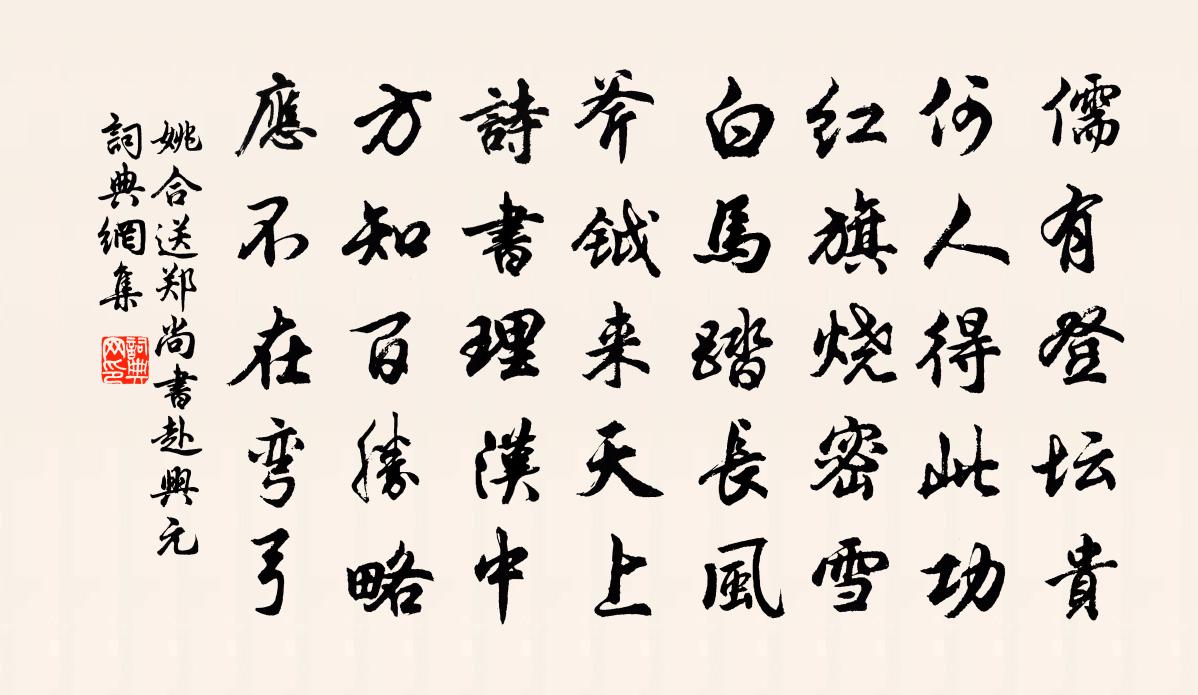 儒有登坛貴
何人得此功
红旗烧密雪
白馬踏長風
斧鉞来天上
詩書理漢中
方知百勝略
應不在弯弓
姚合送郑尚書赴興元
詞典網集
詞典网印